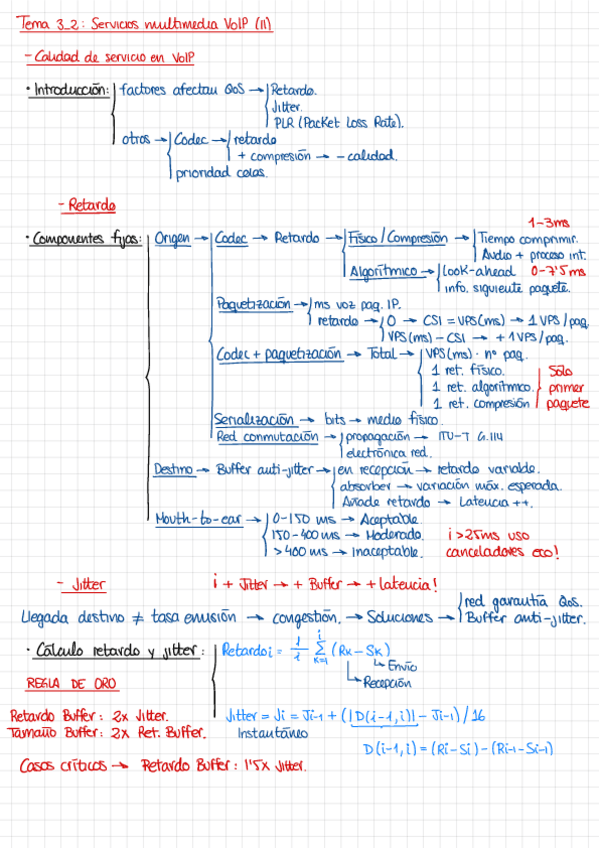 Tema 3_2: Servicios multimedia VoIP (II)
- Calidad de servicio en VoIP
• Introducción: factores afectan QoS → Retardo.
Jitter.
PLR (Packet Loss Rate).
otros → Codec → retardo
+ compresión → - calidad.
prioridad colas.
- Retardo
1-3ms
• Componentes fijas: Origen → Codec → Retardo → Físico/Compresión → Tiempo comprimir.
Audio + proceso int.
Algorítmico → Look-ahead 0-7'5ms
info. siguiente paquete.
Paquetización → ms voz paq. IP.
retardo → 0 → CSI = VPS(ms) → 1 VPS/paq.
VPS(ms) - CSI → + 1 VPS/paq.
Codec + paquetización → Total → VPS(ms) · nº paq.
1 ret. físico. Sólo
1 ret. algorítmico. primer
1 ret. compresión paquete
Serialización → bits → medio físico.
Red conmutación → propagación → ITU-T G.114
electrónica red.
Destino → Buffer anti-jitter → en recepción → retardo variable.
absorber → variación máx. esperada.
Añade retardo → Latencia ++.
Mouth-to-ear → 0-150 ms → Aceptable.
150-400 ms → Moderado. ¡>25ms uso
>400 ms → Inaceptable. canceladores eco!
- Jitter ¡+ Jitter → + Buffer → + latencia!
red garantía QoS.
Llegada destino ≠ tasa emisión → congestión. → Soluciones → Buffer anti-jitter.
• Cálculo retardo y jitter: Retardo i = 1/i Σ k=1 i (Rk - Sk)
↳ Envío
↳ Recepción
REGLA DE ORO
Retardo Buffer: 2x Jitter. Jitter = Ji = Ji-1 + (|D(i-1,i)| - Ji-1)/16
Tamaño Buffer: 2x Ret. Buffer. Instantáneo
D(i-1,i) = (Ri - Si) - (Ri-1 - Si-1)
Casos críticos → Retardo Buffer: 1'5x Jitter.